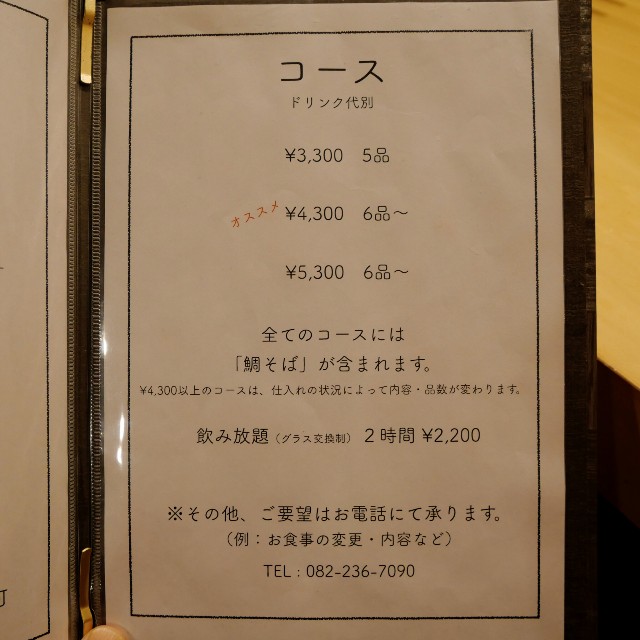 コース
ドリンク代別
¥3,300 5品
オススメ ¥4,300 6品〜
¥5,300 6品〜
全てのコースには
「鯛そば」が含まれます。
¥4,300以上のコースは、仕入れの状況によって内容・品数が変わります。
飲み放題（グラス交換制） 2時間 ¥2,200
※その他、ご要望はお電話にて承ります。
（例：お食事の変更・内容など）
TEL : 082-236-7090